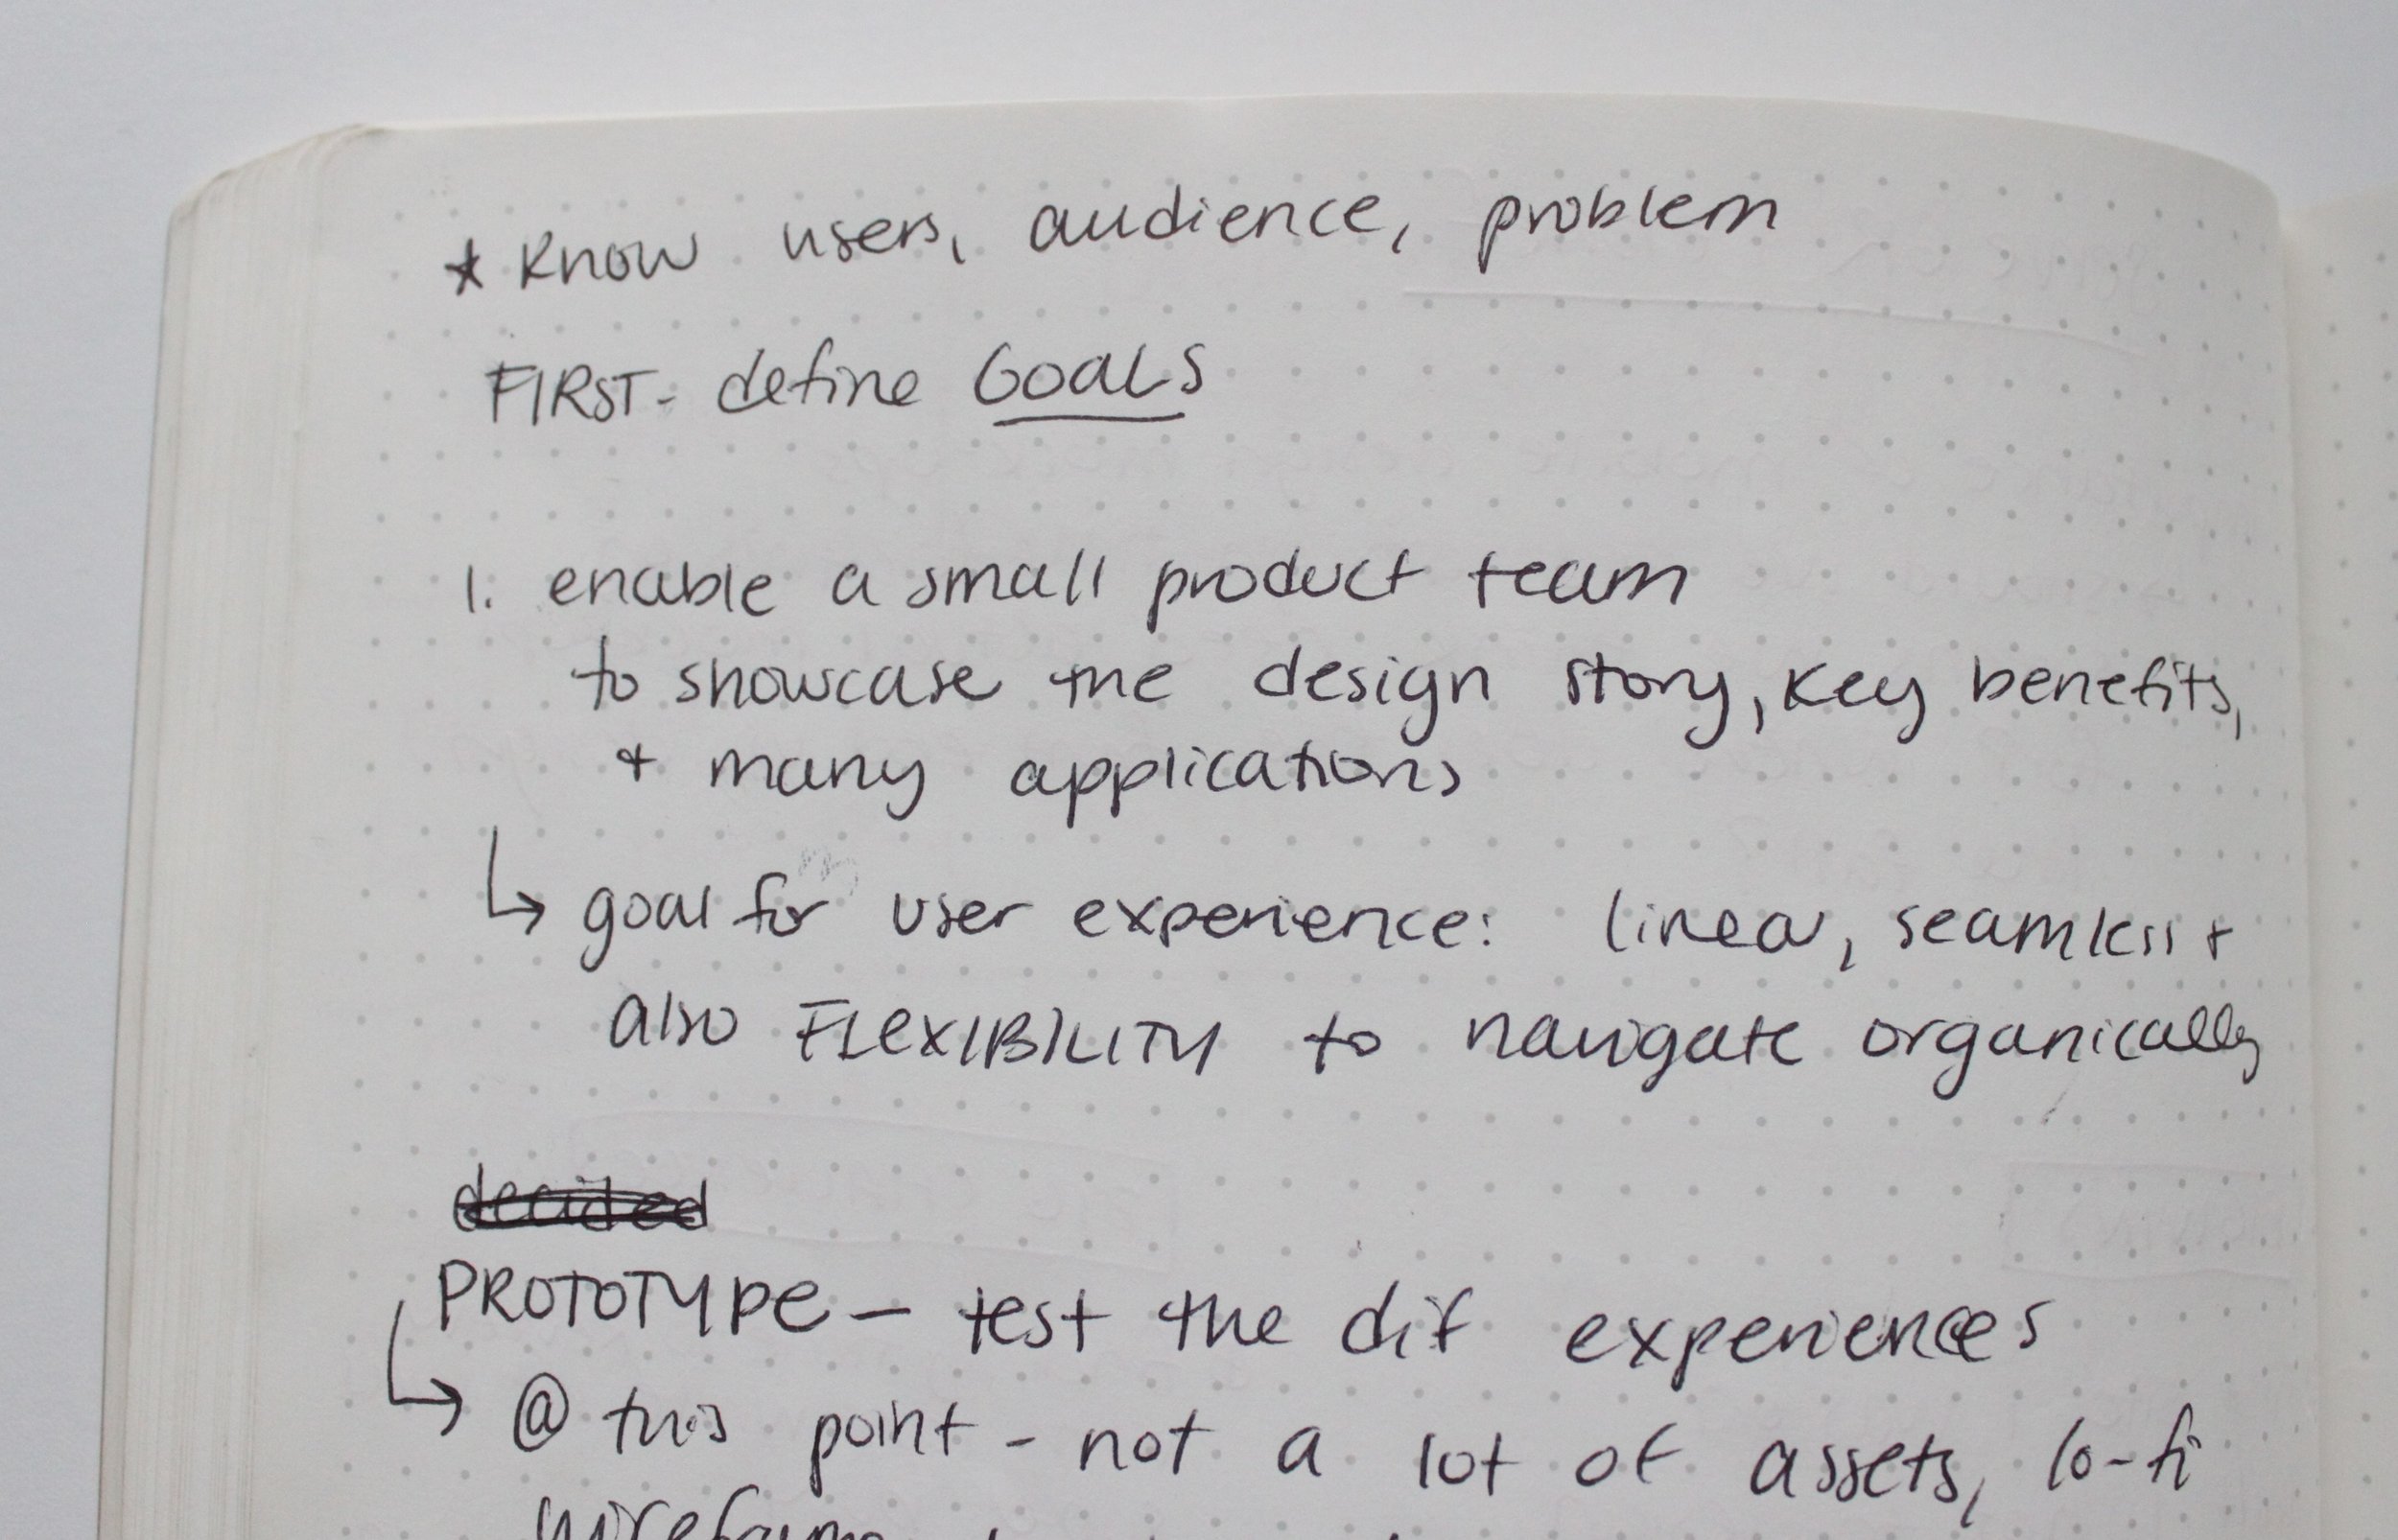 * Know users, audience, problem
FIRST - define GOALS
1. enable a small product team
to showcase the design story, key benefits,
+ many applications
↳ goal for user experience: linear, seamless +
also FLEXIBILITY to navigate organically
decided
PROTOTYPE — test the dif experiences
↳ @ this point - not a lot of assets, lo-fi